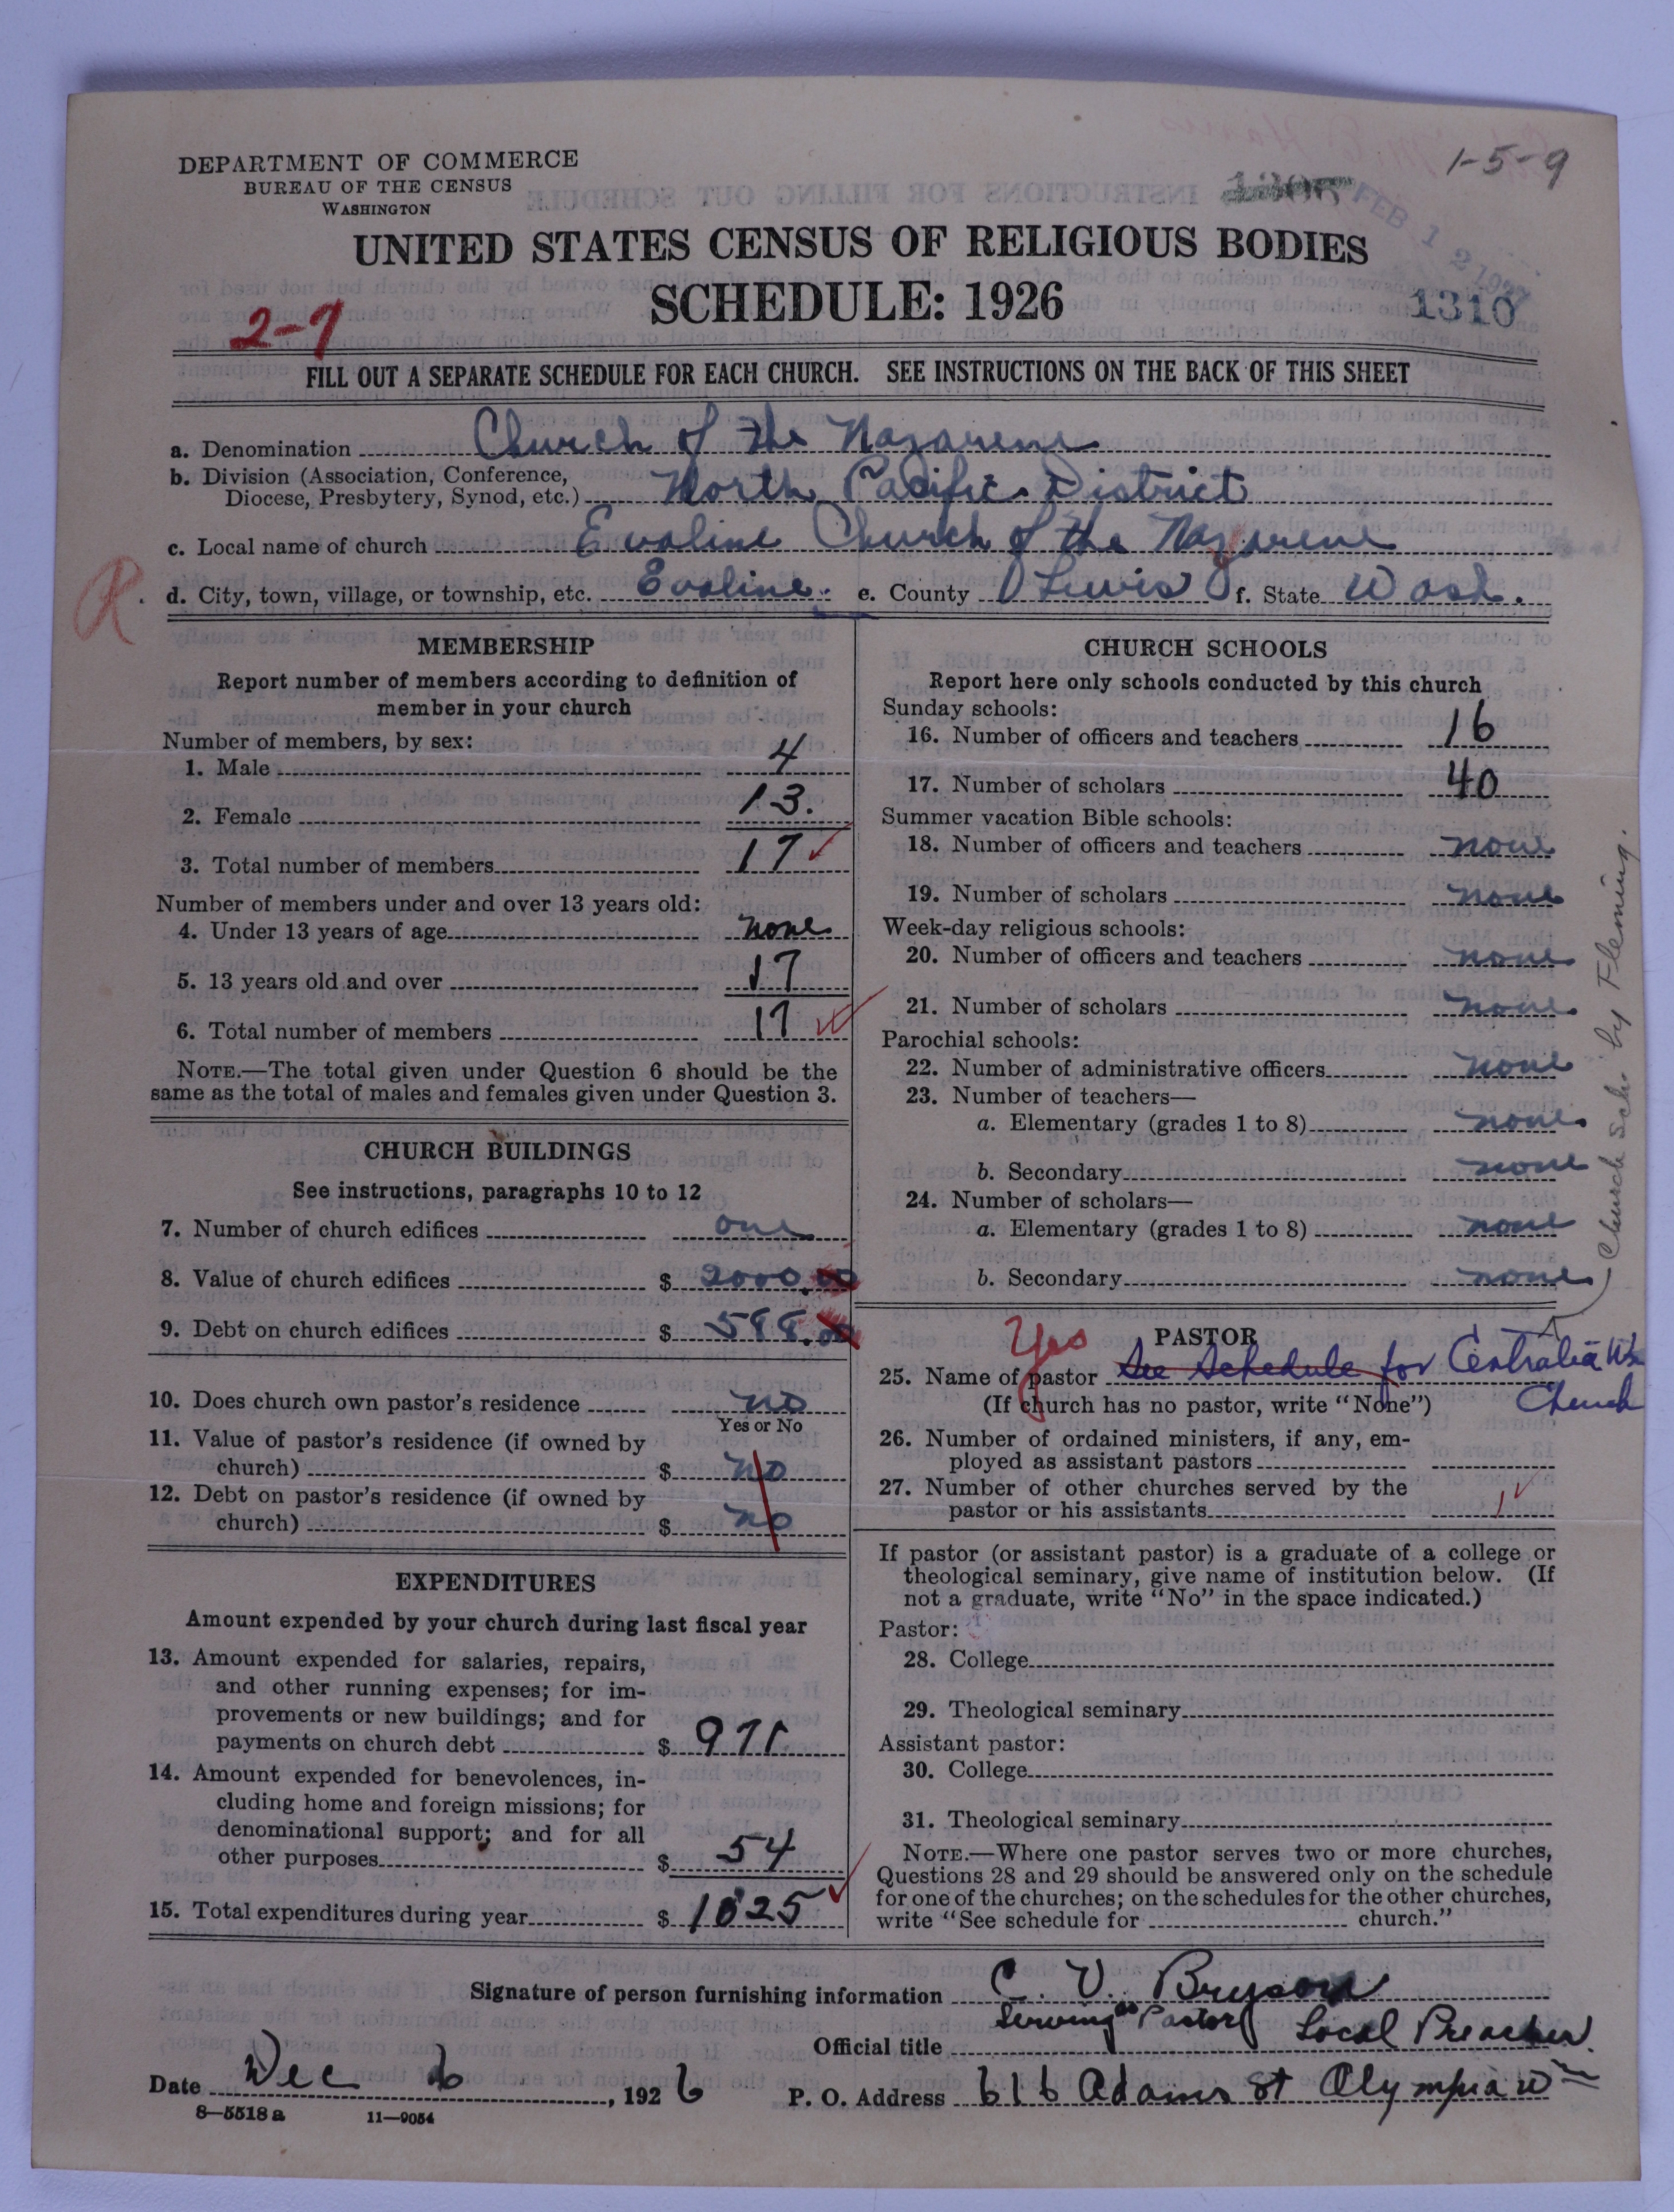 1-5-9
DEPARTMENT OF COMMERCE
BUREAU OF THE CENSUS
WASHINGTON
FEB 12 1927
UNITED STATES CENSUS OF RELIGIOUS BODIES
SCHEDULE: 1926
1310
2-7
FILL OUT A SEPARATE SCHEDULE FOR EACH CHURCH. SEE INSTRUCTIONS ON THE BACK OF THIS SHEET
a. Denomination Church of the Nazarene
b. Division (Association, Conference,
Diocese, Presbytery, Synod, etc.) North Pacific District
c. Local name of church Evaline Church of the Nazarene
R. d. City, town, village, or township, etc. Evaline. e. County Lewis f. State Wash.
MEMBERSHIP
Report number of members according to definition of
member in your church
Number of members, by sex:
1. Male 4
2. Female 13.
3. Total number of members 17
Number of members under and over 13 years old:
4. Under 13 years of age none
5. 13 years old and over 17
6. Total number of members 17
NOTE.—The total given under Question 6 should be the
same as the total of males and females given under Question 3.
CHURCH BUILDINGS
See instructions, paragraphs 10 to 12
7. Number of church edifices one
8. Value of church edifices $ 2000.00
9. Debt on church edifices $ 588.00
10. Does church own pastor's residence no
Yes or No
11. Value of pastor's residence (if owned by
church) $ no
12. Debt on pastor's residence (if owned by
church) $ no
EXPENDITURES
Amount expended by your church during last fiscal year
13. Amount expended for salaries, repairs,
and other running expenses; for im-
provements or new buildings; and for
payments on church debt $ 971
14. Amount expended for benevolences, in-
cluding home and foreign missions; for
denominational support; and for all
other purposes $ 54
15. Total expenditures during year $ 1025
CHURCH SCHOOLS
Report here only schools conducted by this church
Sunday schools:
16. Number of officers and teachers 16
17. Number of scholars 40
Summer vacation Bible schools:
18. Number of officers and teachers none
19. Number of scholars none
Week-day religious schools:
20. Number of officers and teachers none
21. Number of scholars none
Parochial schools:
22. Number of administrative officers none
23. Number of teachers—
a. Elementary (grades 1 to 8) none
b. Secondary none
24. Number of scholars—
a. Elementary (grades 1 to 8) none
b. Secondary none
Church Sch. by Fleming.
Yes
PASTOR
25. Name of pastor See Schedule for Centralia Wn
(If church has no pastor, write "None") Church
26. Number of ordained ministers, if any, em-
ployed as assistant pastors
27. Number of other churches served by the
pastor or his assistants 1
If pastor (or assistant pastor) is a graduate of a college or
theological seminary, give name of institution below. (If
not a graduate, write "No" in the space indicated.)
Pastor:
28. College
29. Theological seminary
Assistant pastor:
30. College
31. Theological seminary
NOTE.—Where one pastor serves two or more churches,
Questions 28 and 29 should be answered only on the schedule
for one of the churches; on the schedules for the other churches,
write "See schedule for church."
Signature of person furnishing information C. V. Bryson
Serving as Pastor
Official title Local Preacher.
Date Dec 6, 1926 P. O. Address 616 Adams St Olympia Wn
8—5518a 11—9054